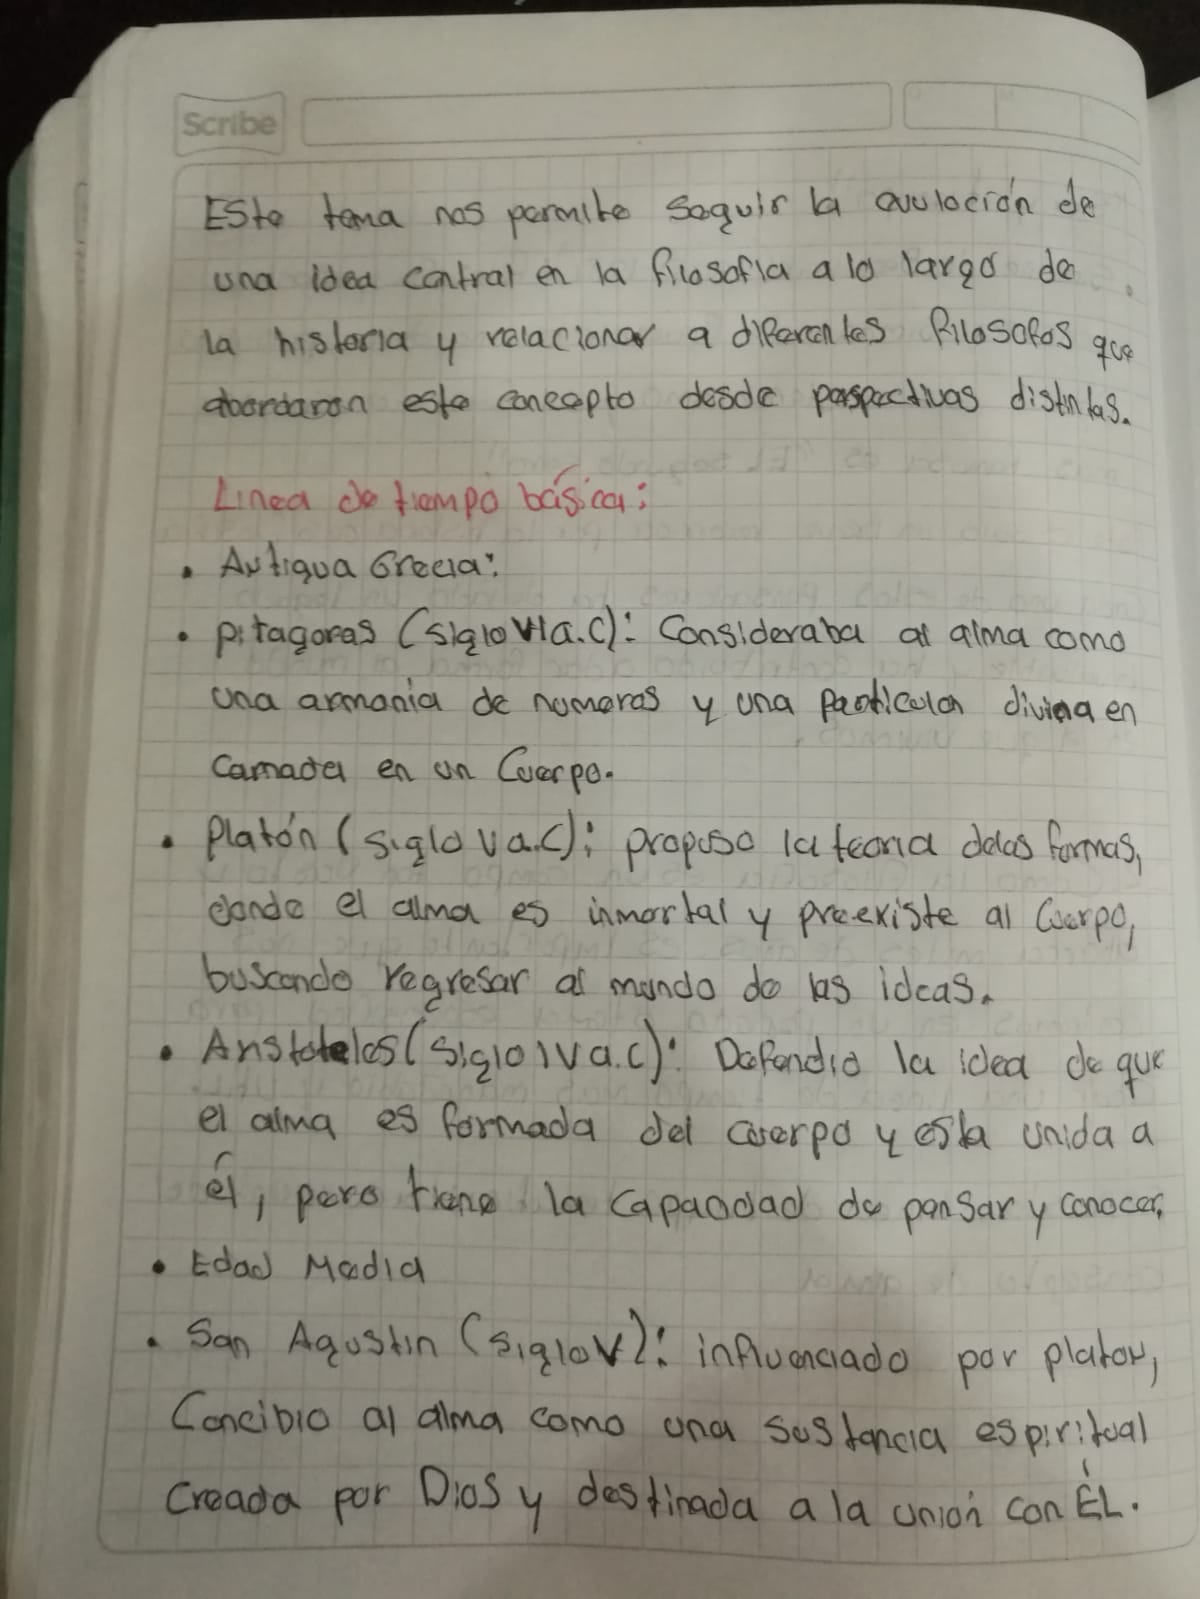 Scribe
Este tema nos permite seguir la evuloción de
una idea central en la filosofia a lo largo de
la historia y relacionar a diferentes filosofos que
abordaron este concepto desde perspectivas distintas.
Linea de tiempo básica:
• Antigua Grecia:
• pitagoras (siglo VI a.C): Consideraba al alma como
una armonia de numeros y una particula divina en
camada en un Cuerpo.
• Platón (siglo V a.C): propuso la teoria delas formas,
donde el alma es inmortal y preexiste al Cuerpo,
buscando regresar al mundo de las ideas.
• Aristoteles (siglo IV a.C): Defendio la idea de que
el alma es formada del cuerpo y esta unida a
él, pero tiene la capacidad de pensar y conocer.
• Edad Media
• San Agustin (siglo V): influenciado por platon,
Concibio al alma como una sustancia espiritual
creada por Dios y destinada a la unión con ÉL.